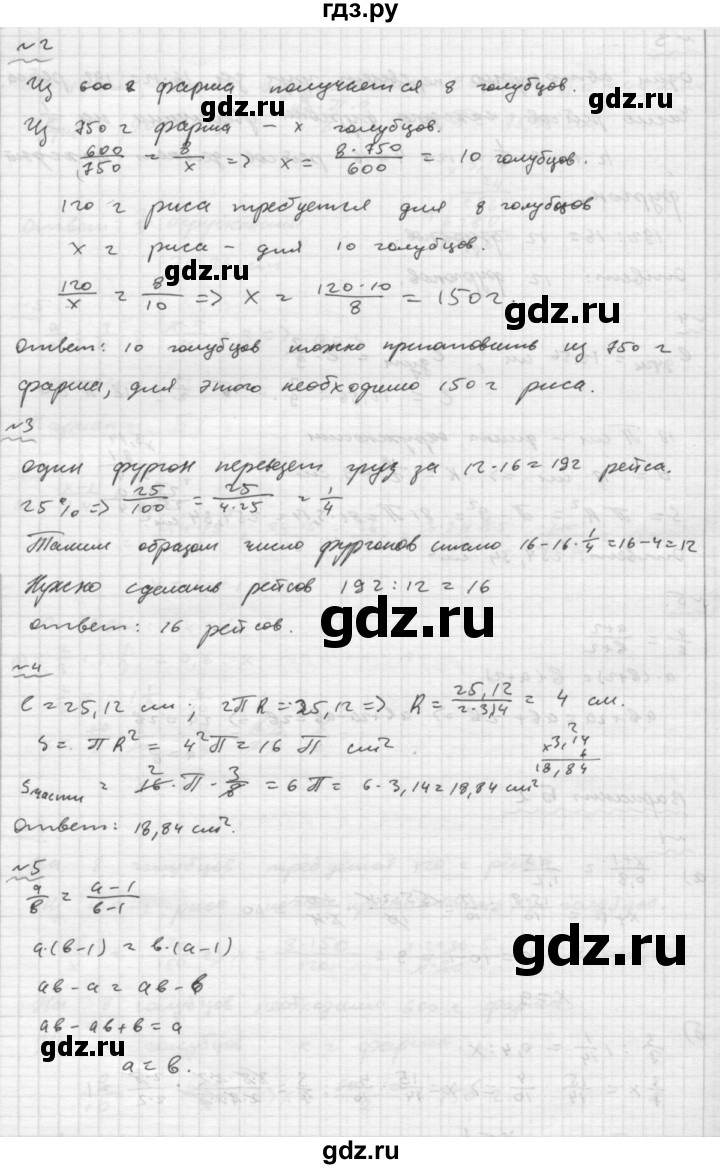 гдз.ру
№2
Из 600 г фарша получается 8 голубцов.
gdz.ru
gdz.ru
Из 750 г фарша – x голубцов.
600/750 = 8/x => x = 8·750/600 = 10 голубцов.
gdz.ru
120 г риса требуется для 8 голубцов
x г риса – для 10 голубцов.
gdz.ru
120/x = 8/10 => x = 120·10/8 = 150 г.
gdz.ru
Ответ: 10 голубцов можно приготовить из 750 г
фарша, для этого необходимо 150 г риса.
gdz.ru
№3
Один фургон перевезет груз за 12·16=192 рейса.
25% => 25/100 = 25/4·25 = 1/4
gdz.ru
Таким образом число фургонов стало 16-16·1/4=16-4=12
Нужно сделать рейсов 192:12=16
gdz.ru
Ответ: 16 рейсов.
№4
C=25,12 см; 2πR=25,12 => R=25,12/2·3,14 = 4 см.
gdz.ru
S = πR² = 4²π = 16 π см².
2
×3,14
6
18,84
Sчасти = 16·π·3/8 = 6π = 6·3,14=18,84 см²
2
gdz.ru
Ответ: 18,84 см².
№5
gdz.ru
a/b = a-1/b-1
a·(b-1) = b·(a-1)
gdz.ru
ab-a = ab-b
ab-ab+b=a
gdz.ru
a=b.
gdz.ru
gdz.ru